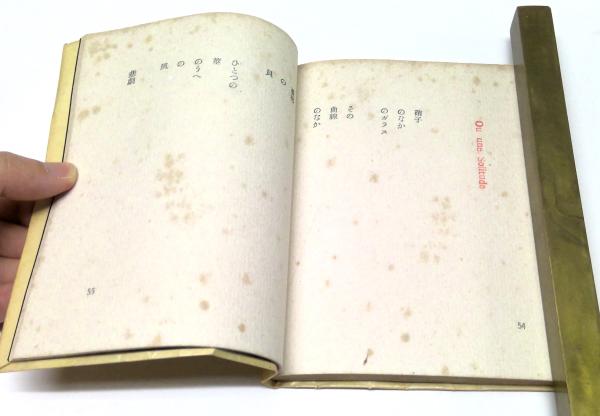 Ou une Solitude
硝子
のなか
のガラス
その
曲線
のなか
54
の
貝
ひとつの
のうへ
の
風
悲劇
55